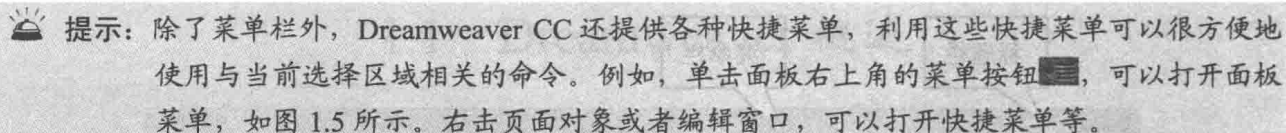 提示：除了菜单栏外，Dreamweaver CC 还提供各种快捷菜单，利用这些快捷菜单可以很方便地
使用与当前选择区域相关的命令。例如，单击面板右上角的菜单按钮，可以打开面板
菜单，如图 1.5 所示。右击页面对象或者编辑窗口，可以打开快捷菜单等。